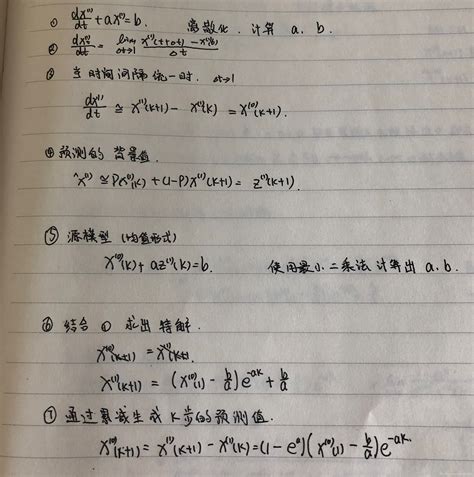 ① dx⁽¹⁾/dt + ax⁽¹⁾ = b. 离散化, 计算 a, b.
② dx⁽¹⁾/dt = lim Δt→1 (x⁽¹⁾(t+Δt) − x⁽¹⁾(t))/Δt
③ 当时间间隔统一时. Δt→1
dx⁽¹⁾/dt ≅ x⁽¹⁾(k+1) − x⁽¹⁾(k) = x⁽⁰⁾(k+1).
④ 预测的背景值.
^x⁽¹⁾ ≅ Px⁽¹⁾(k) + (1−P)x⁽¹⁾(k+1) = z⁽¹⁾(k+1).
⑤ 源模型 (均值形式)
x⁽⁰⁾(k) + az⁽¹⁾(k) = b. 使用最小二乘法计算出 a, b.
⑥ 结合 ① 求出特解.
x⁽⁰⁾(k+1) = x⁽¹⁾(k+1.
x⁽¹⁾(k+1) = (x⁽⁰⁾(1) − b/a)e^{−ak} + b/a
⑦ 通过累减生成 k步的预测值.
x⁽⁰⁾(k+1) = x⁽¹⁾(k+1) − x⁽¹⁾(k) = (1 − eᵃ)(x⁽⁰⁾(1) − b/a)e^{−ak}.